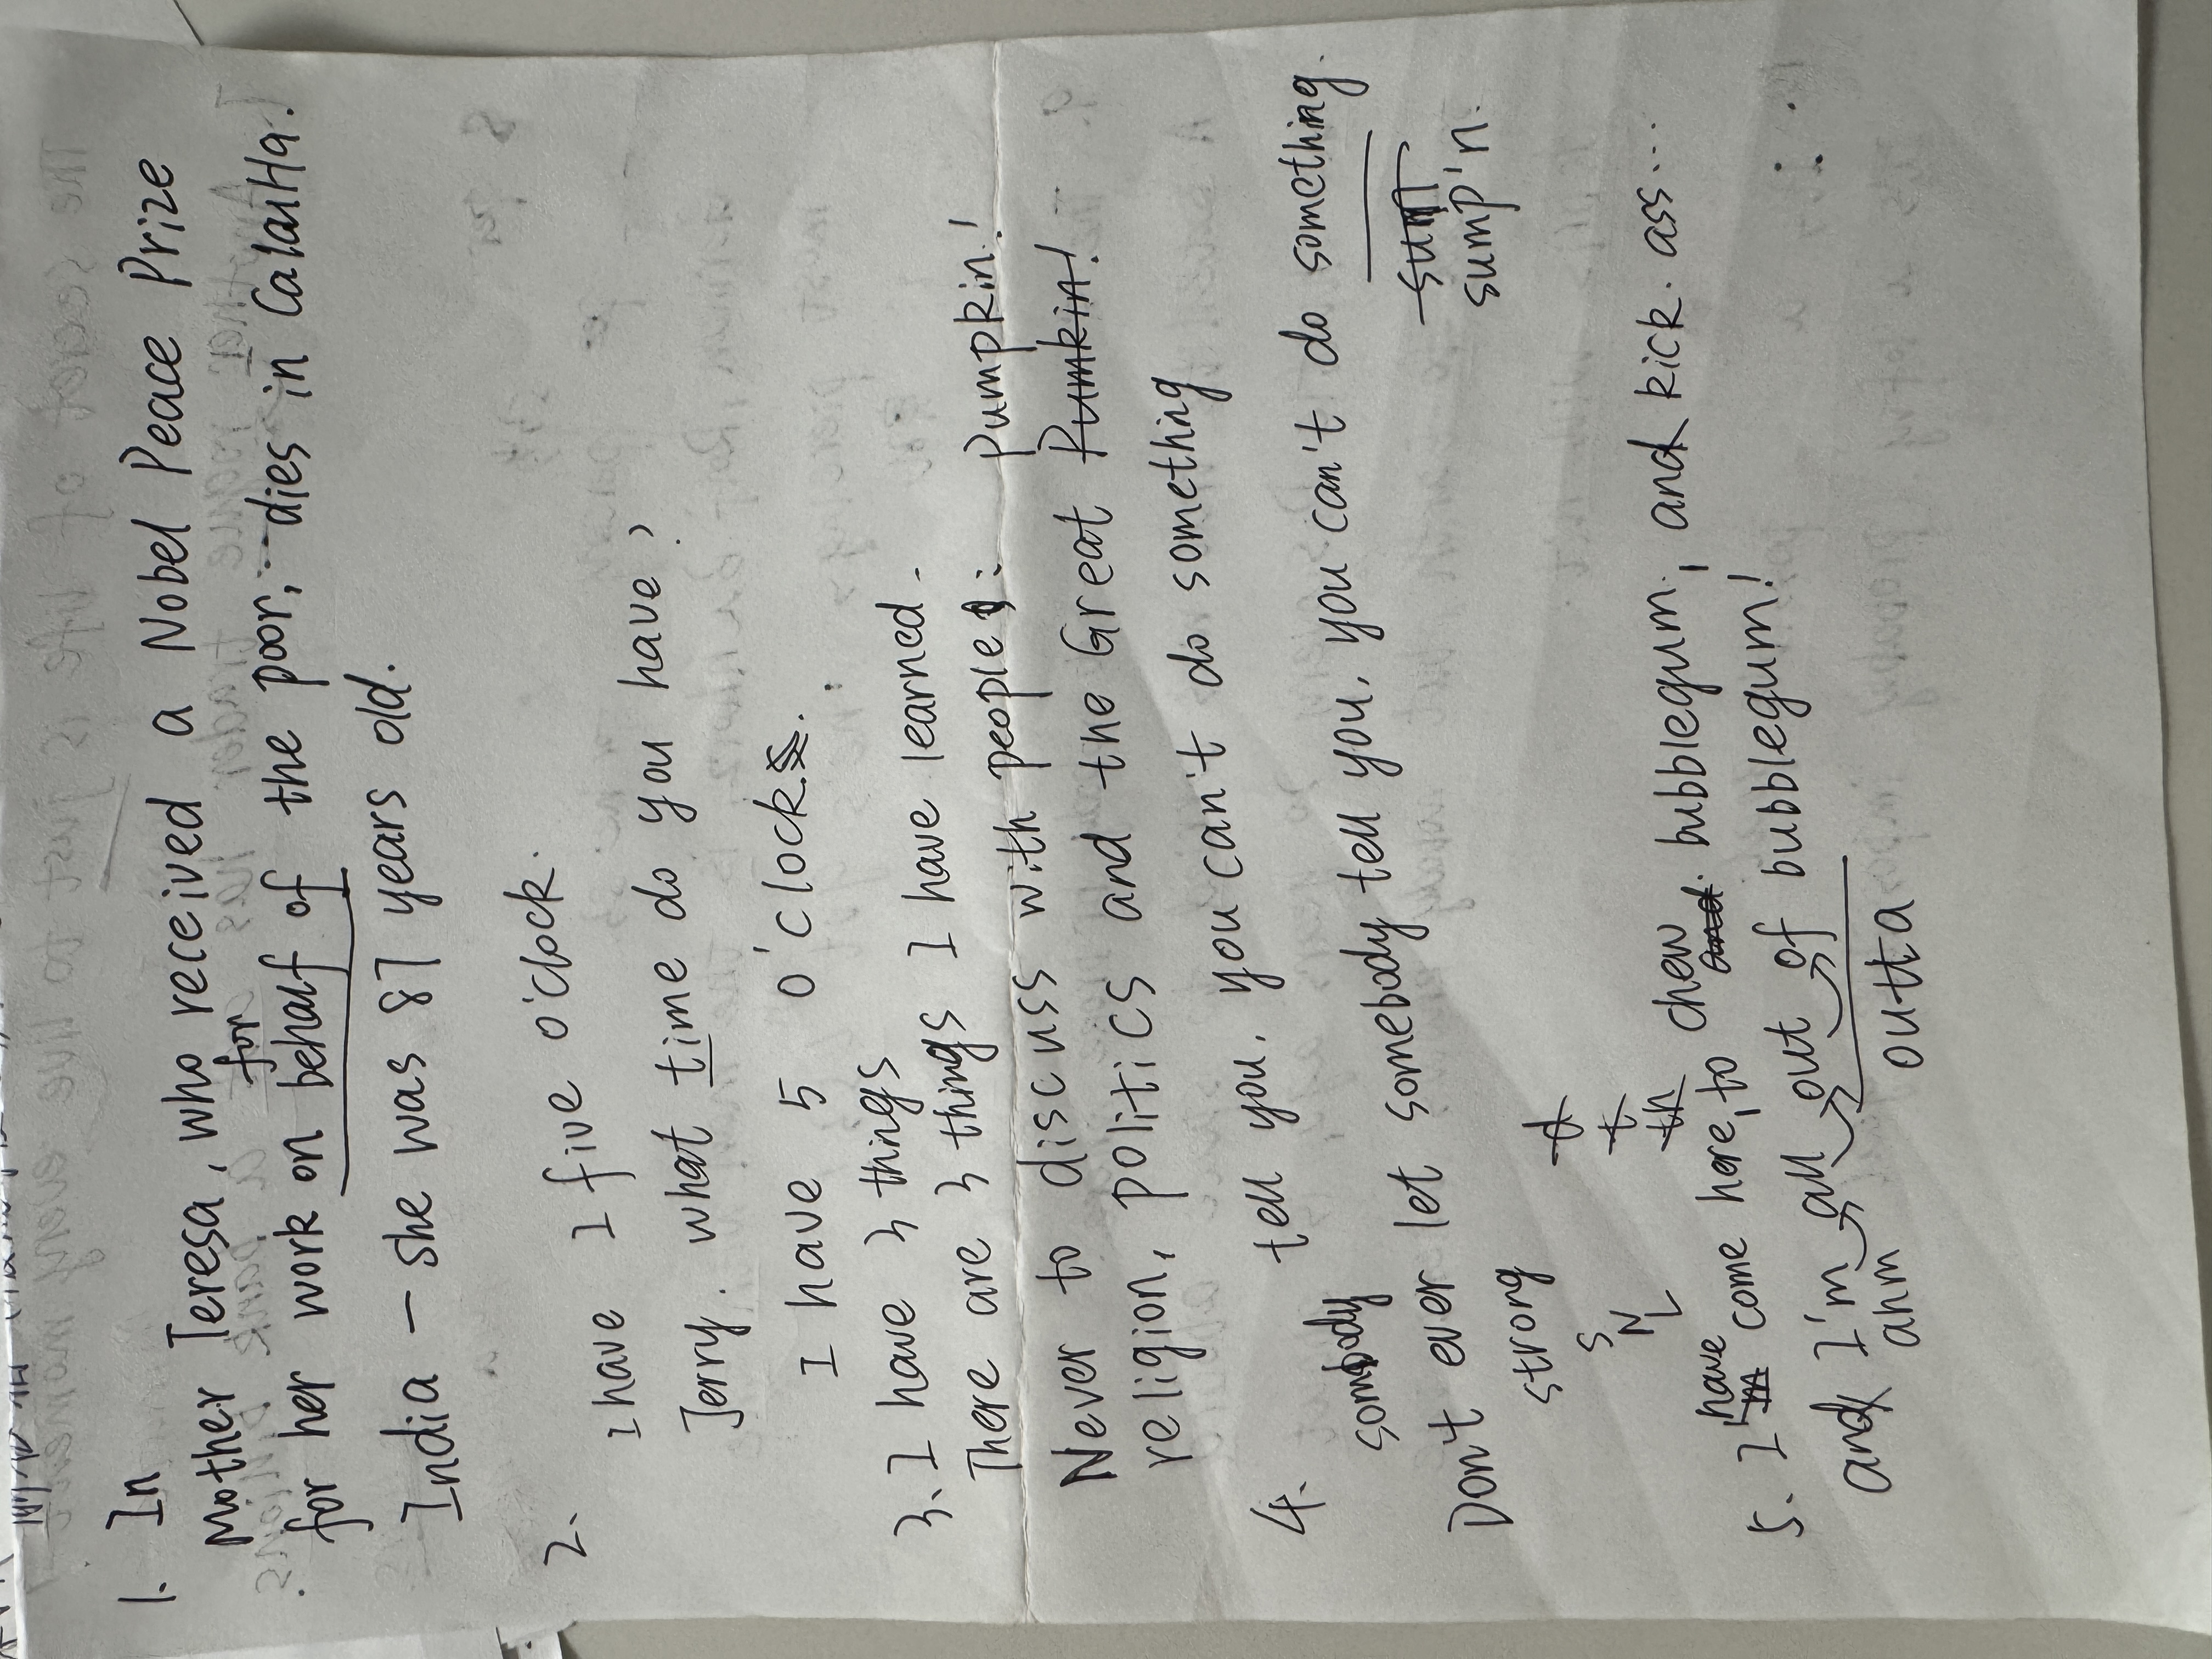 1. In
Mother Teresa, who received a Nobel Peace Prize
for
for her work on behalf of the poor, dies in Calcutta.
India – she was 87 years old.
2.
I have I five o'clock.
Jerry. what time do you have?
I have 5 o'clock.
3. I have 3 things
There are 3 things I have learned
Never to discuss with people: Pumpkin!
religion, politics and the Great Pumkin!
4. tell you, you can't do something
somebody
Don't ever let somebody tell you, you can't do something.
sum
sump'n.
strong
d
S
t
N
th
L
have chew
5. I'm come here, to and bubblegum, and kick. ass...
and I'm all out of bubblegum!
ahm outta